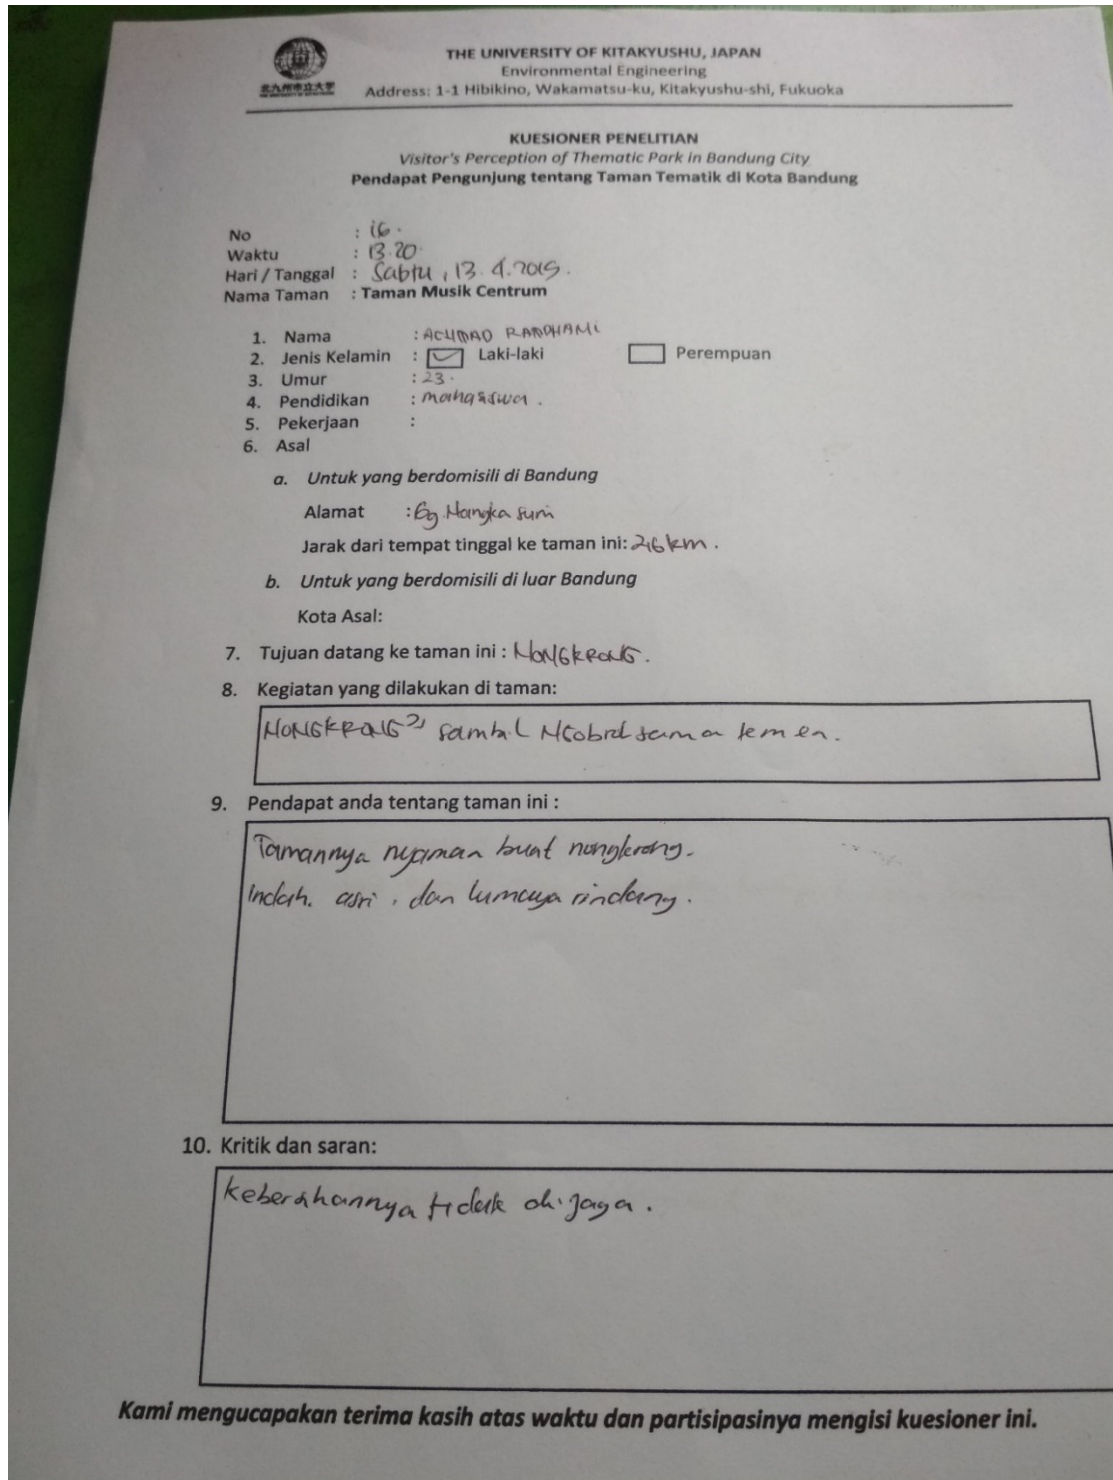 THE UNIVERSITY OF KITAKYUSHU, JAPAN
Environmental Engineering
北九州市立大学
Address: 1-1 Hibikino, Wakamatsu-ku, Kitakyushu-shi, Fukuoka
KUESIONER PENELITIAN
Visitor's Perception of Thematic Park in Bandung City
Pendapat Pengunjung tentang Taman Tematik di Kota Bandung
No : 16.
Waktu : 13.20.
Hari / Tanggal : Sabtu, 13.
Nama Taman : Taman Musik Centrum
1. Nama : ACHMAD
2. Jenis Kelamin : Laki-laki Perempuan
3. Umur : 23.
4. Pendidikan : mahasiswa.
5. Pekerjaan :
6. Asal
a. Untuk yang berdomisili di Bandung
Alamat : Gg. Nangka
Jarak dari tempat tinggal ke taman ini: 2,6 km.
b. Untuk yang berdomisili di luar Bandung
Kota Asal:
7. Tujuan datang ke taman ini : NONGKRONG.
8. Kegiatan yang dilakukan di taman:
NONGKRONG2 sambil Ngobrol sama temen.
9. Pendapat anda tentang taman ini :
Tamannya nyaman buat nongkrong.
Indah. asri, dan lumaya rindang.
10. Kritik dan saran:
kebersihannya tidak dijaga.
Kami mengucapakan terima kasih atas waktu dan partisipasinya mengisi kuesioner ini.